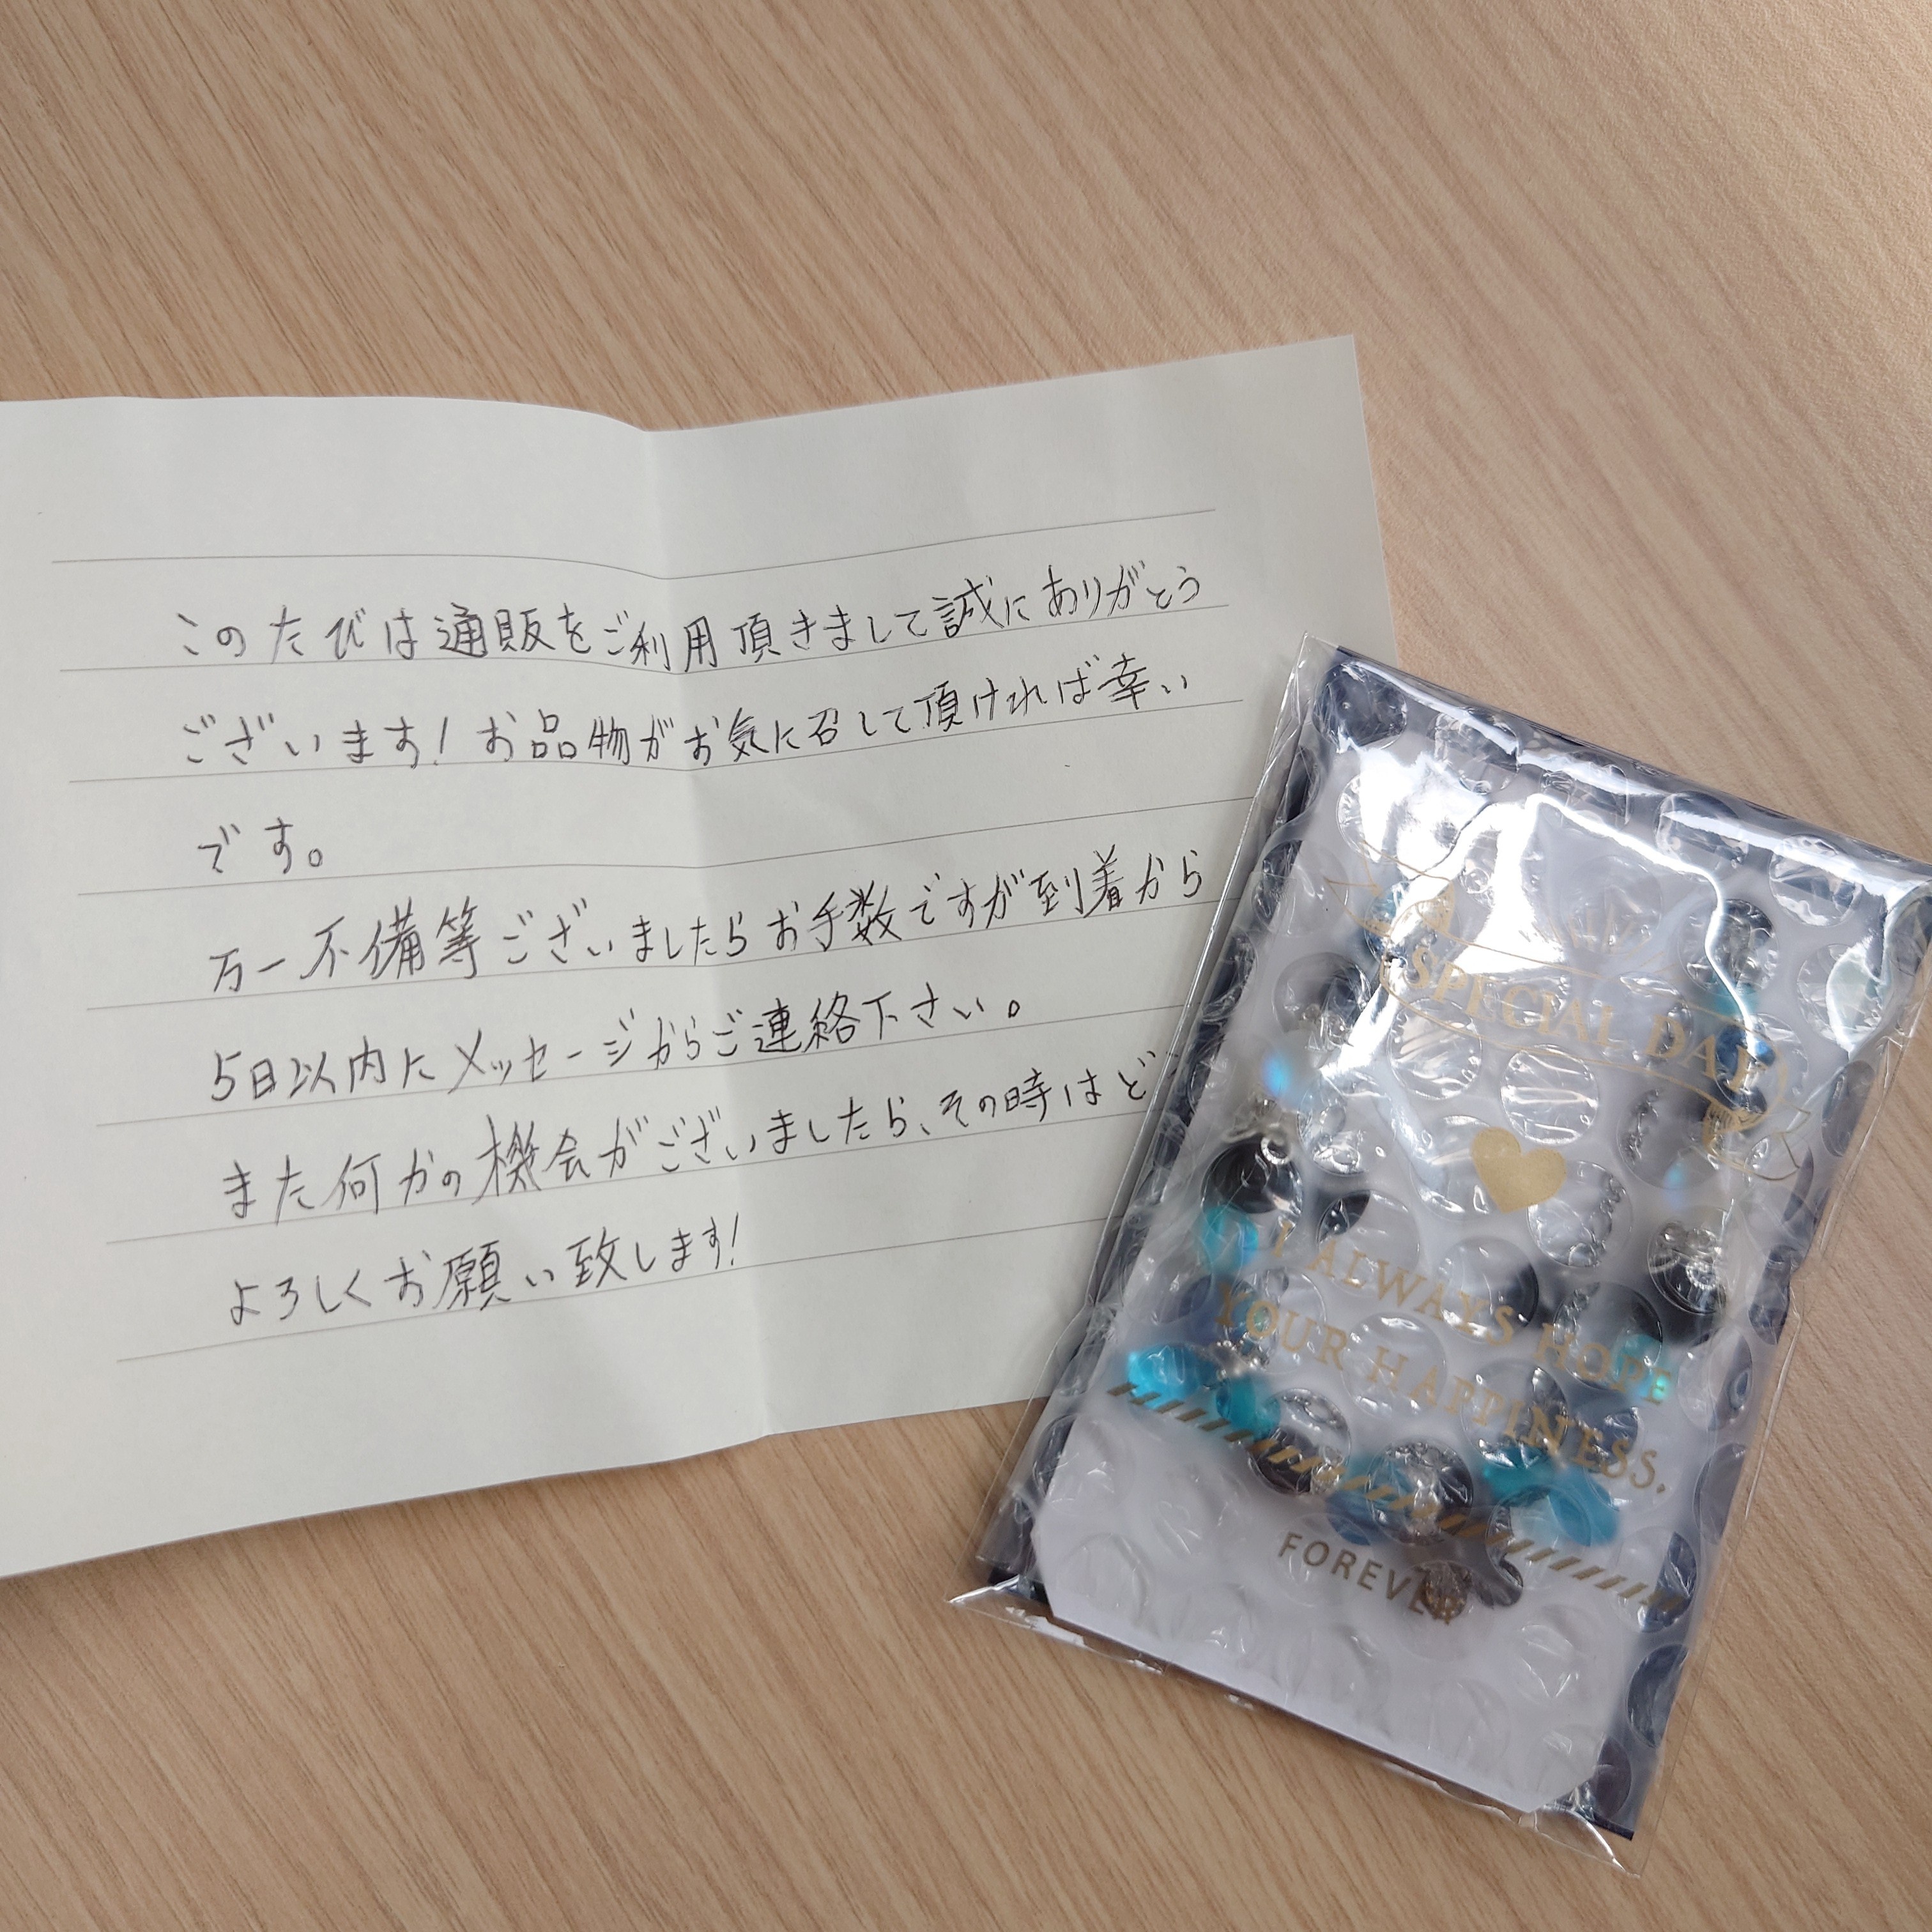 このたびは通販をご利用頂きまして誠にありがとう
ございます! お品物がお気に召して頂ければ幸い
です。
万一不備等ございましたらお手数ですが到着から
5日以内にメッセージからご連絡下さい。
また何かの機会がございましたら、その時はど
よろしくお願い致します!
SPECIAL DAY
I ALWAYS HOPE
YOUR HAPPINESS.
FOREVER